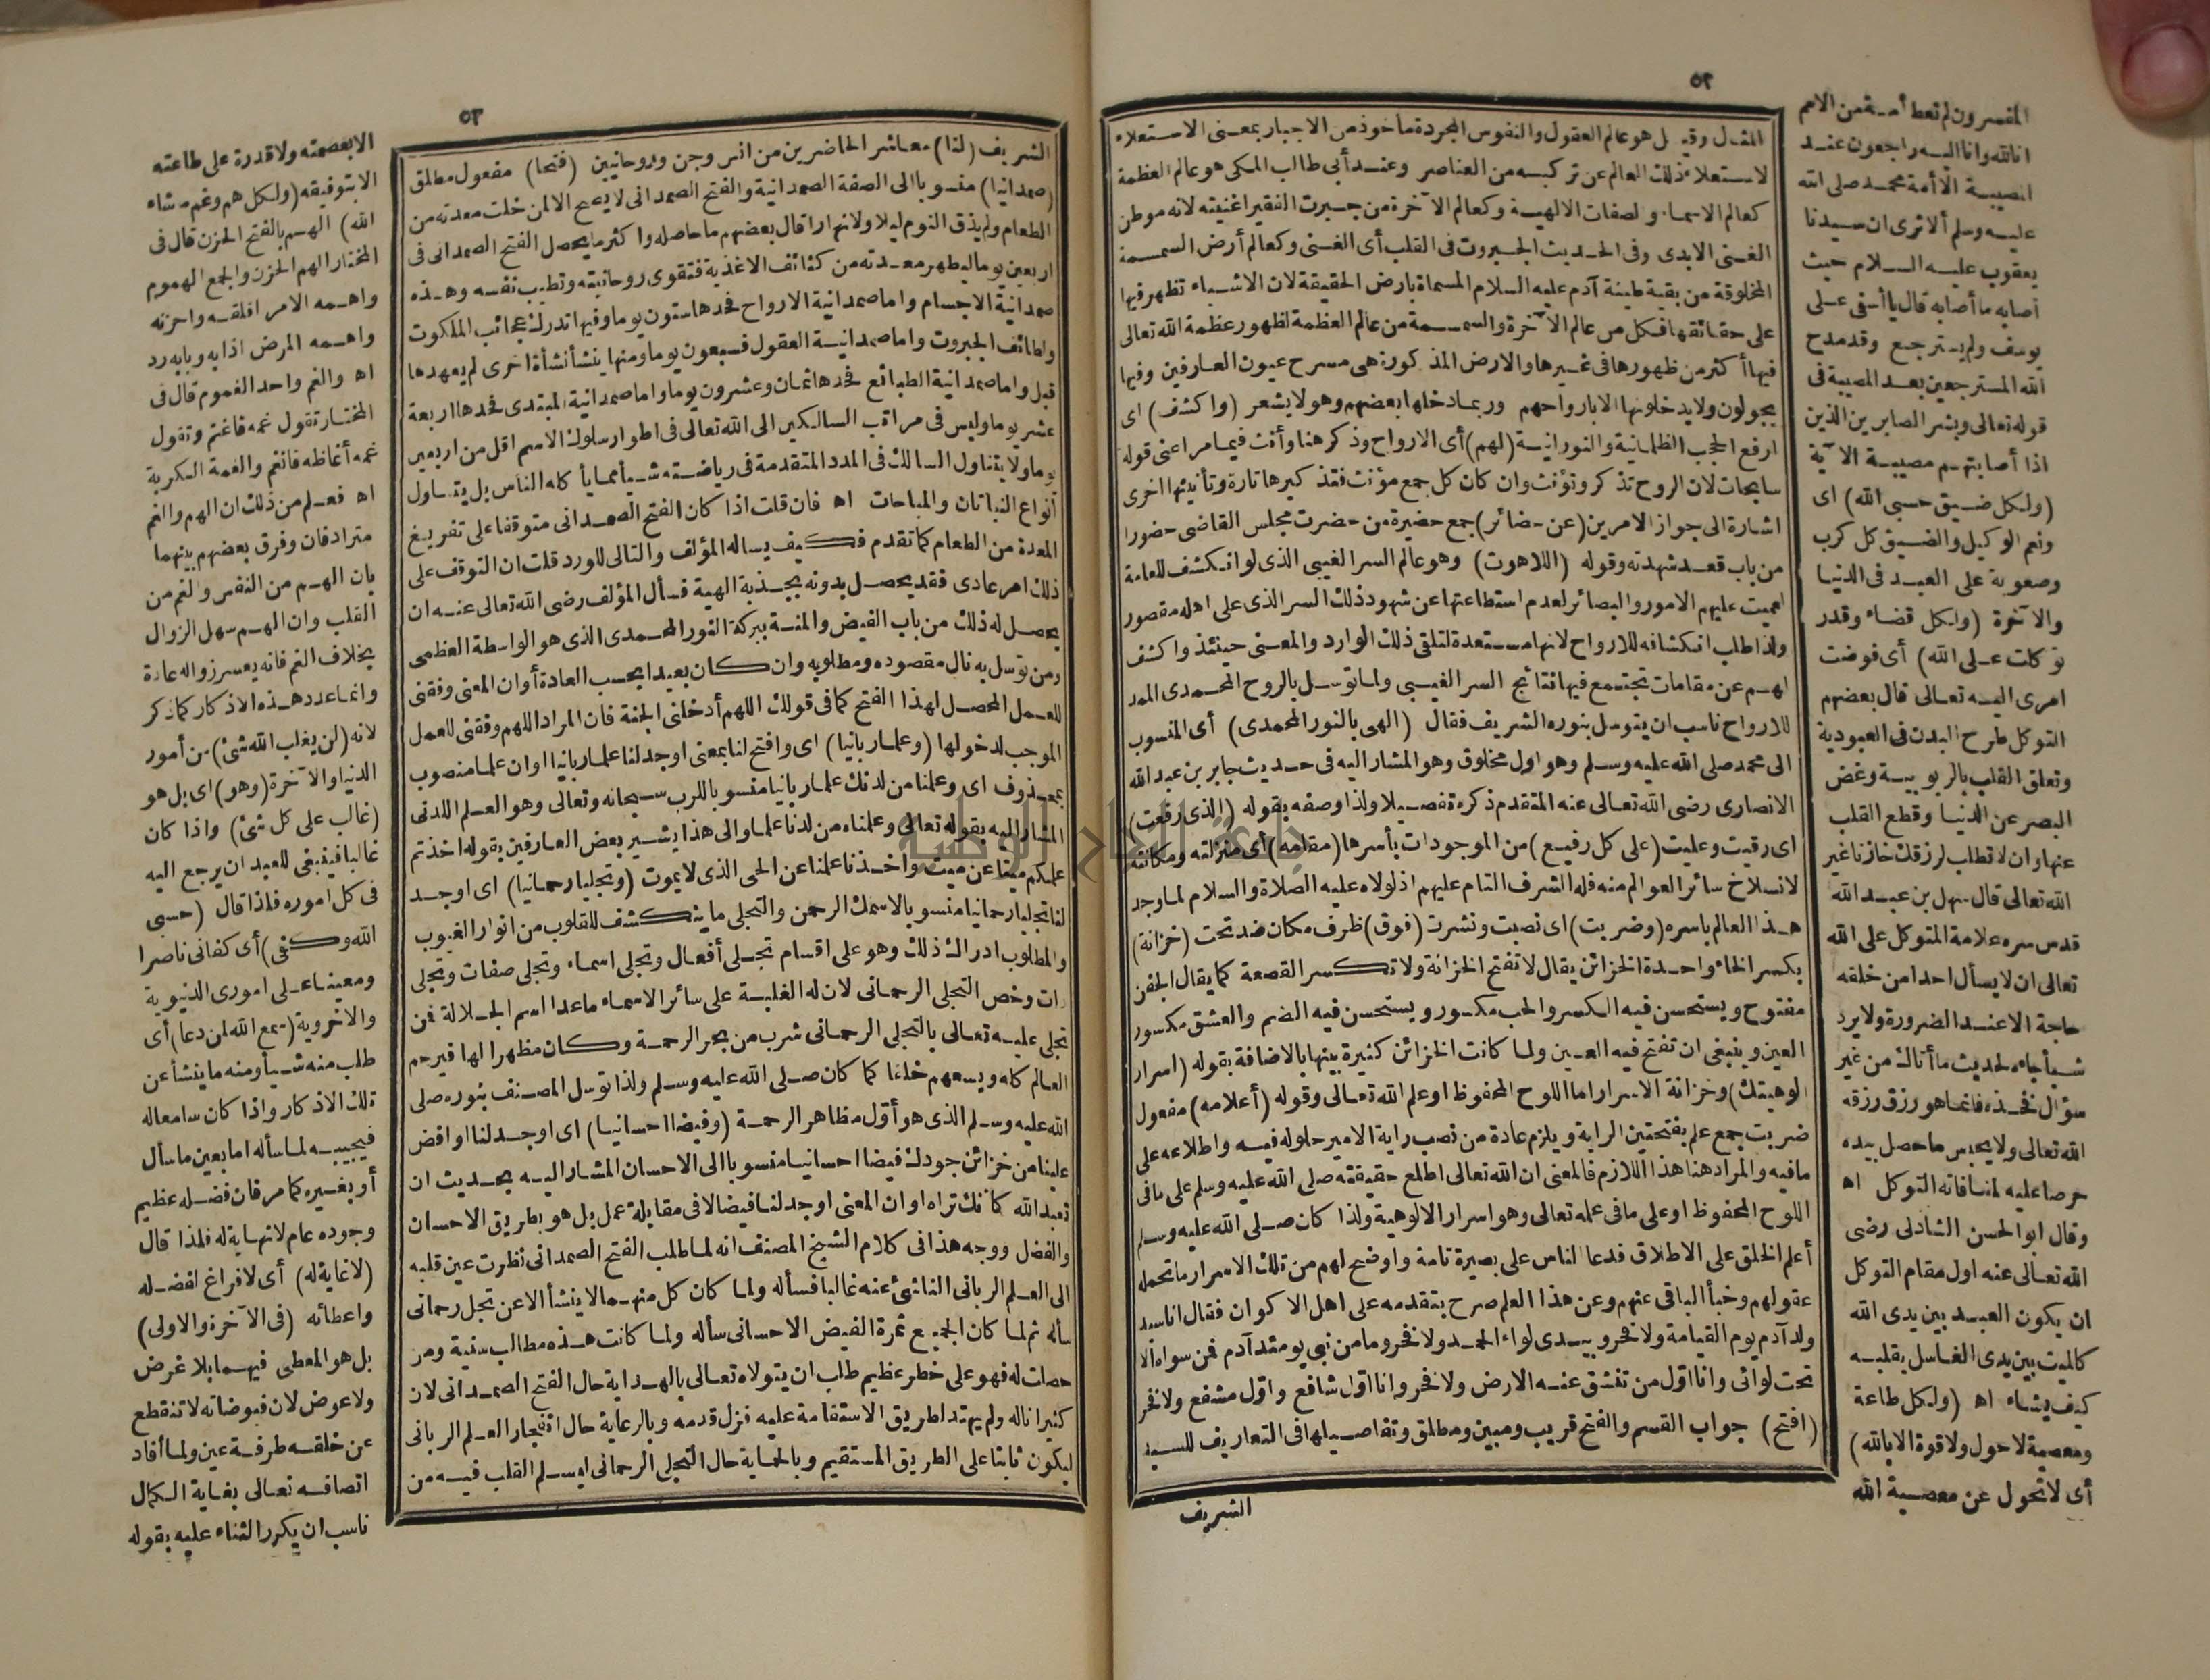 ٥٢
المثال وقيل هو عالم العقول والنفوس المجردة مأخوذ من الاجبار بمعنى الاستعلاء
لاستعلاء ذلك العالم عن تركبه من العناصر وعند أبي طالب المكي هو عالم العظمة
كعالم الاسماء والصفات الالهية وكعالم الآخرة من جبرت الفقير اغنيته لانه موطن
الغنى الابدى وفى الحديث الجبروت فى القلب أى الغنى وكعالم أرض السمسمة
المخلوقة من بقية طينة آدم عليه السلام المسماة بارض الحقيقة لان الاشياء تظهر فيها
على حقائقها فكل من عالم الآخرة والسمسمة من عالم العظمة لظهور عظمة الله تعالى
فيها أكثر من ظهورها فى غيرها والارض المذكورة هى مسرح عيون العارفين وفيها
يجولون ولا يدخلونها الا بارواحهم وربما دخلها بعضهم وهو لا يشعر (واكشف) اى
ارفع الحجب الظلمانية والنورانية (لهم) أى الارواح وذكر هنا وأنث فيما مر اعنى قوله
سابحات لان الروح تذكر وتؤنث وان كان كل جمع مؤنث فتذكيرها تارة وتأنيثها اخرى
اشارة الى جواز الامرين (عن حضائر) جمع حضيرة من حضرت مجلس القاضى حضورا
من باب قعد شهدته وقوله (اللاهوت) وهو عالم السر الغيبى الذى لو انكشف للعامة
لعميت عليهم الامور والبصائر لعدم استطاعتها عن شهود ذلك السر الذى على اهله مقصور
ولذا طلب انكشافه للارواح لانها مستعدة لتلقى ذلك الوارد والمعنى حينئذ واكشف
لهم عن مقامات تجتمع فيها نتائج السر الغيبى ولما توسل بالروح المحمدى الممد
للارواح ناسب ان يتوسل بنوره الشريف فقال (الهى بالنور المحمدى) أى المنسوب
الى محمد صلى الله عليه وسلم وهو اول مخلوق وهو المشار اليه فى حديث جابر بن عبد الله
الانصارى رضى الله تعالى عنه المتقدم ذكره تفصيلا ولذا وصفه بقوله (الذى رفعت)
اى رقيت وعليت (على كل رفيع) من الموجودات بأسرها (مقامه) أى منزلته ومكانته
لانسلاخ سائر العوالم منه فله الشرف التام عليهم اذ لولاه عليه الصلاة والسلام لما وجد
هذا العالم باسره (وضربت) اى نصبت ونشرت (فوق) ظرف مكان ضد تحت (خزانة)
بكسر الخاء واحدة الخزائن يقال لا تفتح الخزانة ولا تكسر القصعة كما يقال الجفن
مفتوح ويستحسن فيه الكسر والحب مكسور ويستحسن فيه الضم والعشق مكسور
العين وينبغى ان تفتح فيه العين ولما كانت الخزائن كثيرة بينها بالاضافة بقوله (اسرار
الوهيتك) وخزانة الاسرار اما اللوح المحفوظ او علم الله تعالى وقوله (أعلامه) مفعول
ضربت جمع علم بفتحتين الراية ويلزم عادة من نصب راية الامير حلوله فيه واطلاعه على
مافيه والمراد هنا هذا اللازم فالمعنى ان الله تعالى اطلع حقيقته صلى الله عليه وسلم على ما فى
اللوح المحفوظ او على ما فى علمه تعالى وهو اسرار الالوهية ولذا كان صلى الله عليه وسلم
أعلم الخلق على الاطلاق فدعا الناس على بصيرة تامة واوضح لهم من تلك الاسرار ما تحمله
عقولهم وخبأ الباقى عنهم وعن هذا العلم صرح بتقدمه على اهل الاكوان فقال انا سيد
ولد آدم يوم القيامة ولا نفخر وبيدى لواء الحمد ولا فخر وما من نبى يومئذ آدم فمن سواه الا
تحت لوائى وانا اول من تنشق عنه الارض ولا فخر وانا اول شافع واول مشفع ولا فخر
(افتح) جواب القسم والفتح قريب ومبين ومطلق وتفاصيلها فى التعاريف للسيد
الشريف
المفسرون لم تعط أمة من الامم
انا لله وانا اليه راجعون عند
المصيبة الا أمة محمد صلى الله
عليه وسلم ألا ترى ان سيدنا
يعقوب عليه السلام حيث
أصابه ما أصابه قال يا أسفى على
يوسف ولم يسترجع وقد مدح
الله المسترجعين بعد المصيبة فى
قوله تعالى وبشر الصابرين الذين
اذا أصابتهم مصيبة الآية
(ولكل ضيق حسبى الله) اى
ونعم الوكيل والضيق كل كرب
وصعوبة على العبد فى الدنيا
والآخرة (ولكل قضاء وقدر
توكلت على الله) أى فوضت
امرى اليه تعالى قال بعضهم
التوكل طرح البدن فى العبودية
وتعلق القلب بالربوبية وغض
البصر عن الدنيا وقطع القلب
عنها وان لا تطلب لرزقك خازنا غير
الله تعالى قال سهل بن عبد الله
قدس سره علامة المتوكل على الله
تعالى ان لا يسأل احدا من خلقه
حاجة الا عند الضرورة ولا يرد
شيأ جاءه لحديث ما أتاك من غير
سؤال فخذه فانما هو رزق رزقه
الله تعالى ولا يحبس ما حصل بيده
حرصا عليه لمنافاته التوكل اه
وقال ابو الحسن الشاذلى رضى
الله تعالى عنه اول مقام التوكل
ان يكون العبد بين يدى الله
كالميت بين يدى الغاسل يقلبه
كيف يشاء اه (ولكل طاعة
ومعصية لا حول ولا قوة الا بالله)
أى لا تحول عن معصية الله
٥٣
الشريف (لنا) معاشر الحاضرين من انس وجن وروحانيين (فتحا) مفعول مطلق
(صمدانيا) منسوبا الى الصفة الصمدانية والفتح الصمدانى لا يصح الا لمن خلت معدته من
الطعام ولم يذق النوم ليلا ولا نهارا قال بعضهم ما حاصله واكثر ما يحصل الفتح الصمدانى فى
اربعين يوما ليطهر معدته من كثائف الاغذية فتقوى روحانيته وتطيب نفسه وهذه
صمدانية الاجسام واما صمدانية الارواح فحدها ستون يوما وفيها تدرك عجائب الملكوت
ولطائف الجبروت واما صمدانية العقول فسبعون يوما ومنها ينشأ نشأة اخرى لم يعهدها
قبل واما صمدانية الطبائع فحدها ثمان وعشرون يوما واما صمدانية المبتدى فحدها اربعة
عشر يوما وليس فى مراقب السالكين الى الله تعالى فى اطوار سلوك الاسم اقل من اربعين
يوما ولا يتناول السالك فى المدد المتقدمة فى رياضته شيأ مما يأكله الناس بل يتناول
أنواع النباتات والمباحات اه فان قلت اذا كان الفتح الصمدانى متوقفا على تفريغ
المعدة من الطعام كما تقدم فكيف يساله المؤلف والتالى للورد قلت ان التوقف على
ذلك امر عادى فقد يحصل بدونه بجذبة الهية فسأل المؤلف رضى الله تعالى عنه ان
يحصل له ذلك من باب الفيض والمنة ببركة النور المحمدى الذى هو الواسطة العظمى
ومن توسل به نال مقصوده ومطلوبه وان كان بعيدا بحسب العادة أو ان المعنى وفقنى
للعمل المحصل لهذا الفتح كما فى قولك اللهم أدخلنى الجنة فان المراد اللهم وفقنى للعمل
الموجب لدخولها (وعلما ربانيا) اى وافتح لنا بمعنى اوجد لنا علما ربانيا او ان علما منصوب
بمحذوف اى وعلمنا من لدنك علما ربانيا منسوبا للرب سبحانه وتعالى وهو العلم اللدنى
المشار اليه بقوله تعالى وعلمناه من لدنا علما والى هذا يشير بعض العارفين بقوله اخذتم
علمكم ميتا عن ميت واخذنا علمنا عن الحى الذى لا يموت (وتجليا رحمانيا) اى اوجد
لنا تجليا رحمانيا منسوبا لاسمك الرحمن والتجلى ما ينكشف للقلوب من انوار الغيوب
والمطلوب ادراك ذلك وهو على اقسام تجلى أفعال وتجلى اسماء وتجلى صفات وتجلى
ذات وخص التجلى الرحمانى لان له الغلبة على سائر الاسماء ماعدا اسم الجلالة فمن
تجلى عليه تعالى بالتجلى الرحمانى شرب من بحر الرحمة وكان مظهرا لها فيرحم
العالم كله ويسعهم خلقا كما كان صلى الله عليه وسلم ولذا توسل المصنف بنوره صلى
الله عليه وسلم الذى هو أول مظاهر الرحمة (وفيضا احسانيا) اى اوجد لنا او افض
علينا من خزائن جودك فيضا احسانيا منسوبا الى الاحسان المشار اليه بحديث ان
تعبد الله كانك تراه او ان المعنى اوجد لنا فيضا لا فى مقابلة عمل بل هو بطريق الاحسان
والفضل ووجه هذا فى كلام الشيخ المصنف انه لما طلب الفتح الصمدانى نظرت عين قلبه
الى العلم الربانى الناشئ عنه غالبا فسأله ولما كان كل منهما لا ينشأ الا عن تجل رحمانى
سأله ثم لما كان الجميع ثمرة الفيض الاحسانى سأله ولما كانت هذه مطالب سنية ومن
حصلت له فهو على خطر عظيم طلب ان يتولاه تعالى بالهداية حال الفتح الصمدانى لان
كثيرا ناله ولم يهتد لطريق الاستقامة عليه فزل قدمه وبالرعاية حال انفجار العلم الربانى
ليكون ثابتا على الطريق المستقيم وبالحماية حال التجلى الرحمانى ليسلم القلب فيه من
الا بعصمته ولا قدرة على طاعته
الا بتوفيقه (ولكل هم وغم ما شاء
الله) الهم بالفتح الحزن قال فى
المختار الهم الحزن والجمع الهموم
واهمه الامر اقلقه واحزنه
واهمه المرض اذابه وبابه رد
اه والغم واحد الغموم قال فى
المختار تقول غمه فاغتم وتقول
غمه أغاظه فانغم والغمة الكربة
اه فعلم من ذلك ان الهم والغم
مترادفان وفرق بعضهم بينهما
بان الهم من النفس والغم من
القلب وان الهم سهل الزوال
بخلاف الغم فانه يعسر زواله عادة
وانما عدد هذه الاذكار كما ذكر
لانه (لن يغلب الله شئ) من أمور
الدنيا والآخرة (وهو) اى بل هو
(غالب على كل شئ) واذا كان
غالبا فينبغى للعبد ان يرجع اليه
فى كل اموره فلذا قال (حسبى
الله وكفى) أى كفانى ناصرا
ومعينا على امورى الدنيوية
والاخروية (سمع الله لمن دعا) أى
طلب منه شيأ ومنه ما ينشأ عن
تلك الاذكار واذا كان سامعا له
فيجيبه لما سأله اما بعين ما سأل
أو بغيره كما مر فان فضله عظيم
وجوده عام لا نهاية له فلذا قال
(لا غاية له) أى لا فراغ لفضله
واعطائه (فى الآخرة والاولى)
بل هو المعطى فيهما بلا غرض
ولا عوض لان فيوضاته لا تنقطع
عن خلقه طرفة عين ولما أفاد
اتصافه تعالى بغاية الكمال
ناسب ان يكرر الثناء عليه بقوله